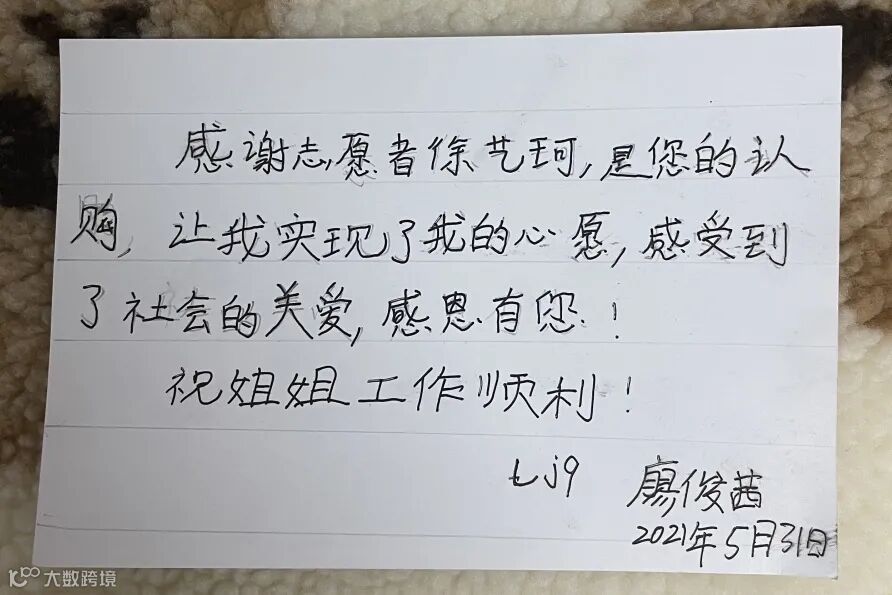 感谢志愿者徐艺珂,是您的认
购,让我实现了我的心愿,感受到
了社会的关爱,感恩有您!
祝姐姐工作顺利!
Lj9
廖俊茜
2021年5月31日
大数跨境